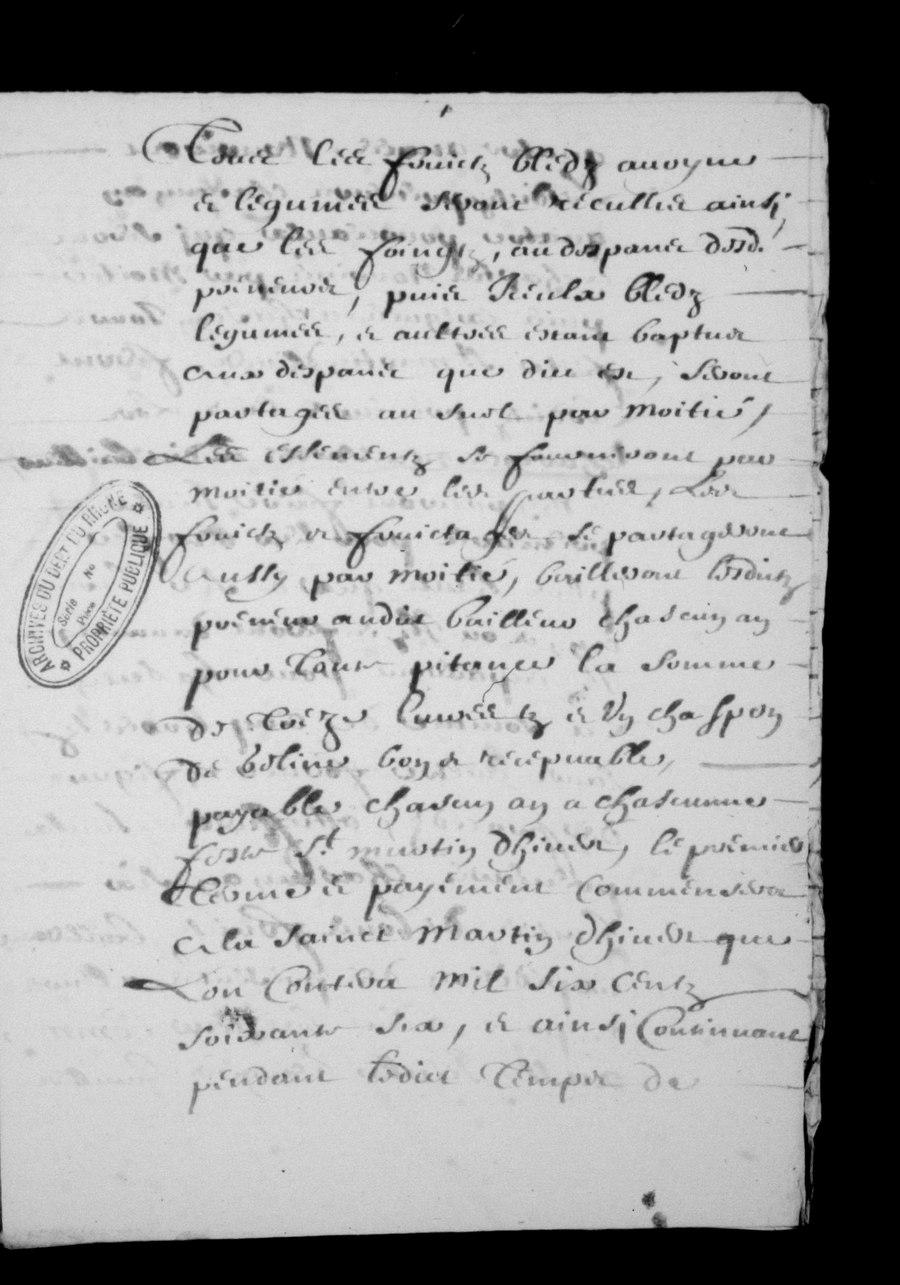 Tous les fruictz bledz avoyne
et legumes seront receullis ainsi
que les foingtz, au despans desd.
preneurs, puis Iceulx bledz
legumes, et aultres estant baptus
aux despans que dict est, seront
partages au suol par moitié,
Les essementz se fourniront par
moitié entre les parties, Les
fruictz et fruictages se partageront
Aussy par moitié, bailleront lesdictz
preneurs audict bailleur chascun an
pour toute pitance la somme
de treze livres tz et Un chappon
de bonne et recepvable,
payable chascun an a chascunne
feste St martin dhiver, le premier
terme et payement Commensera
A la Sainct Martin dhiver que
Lon Contera mil six Centz
soixante six, et ainsi Continuant
pendant ledict temps de
ARCHIVES DU DEPT DU RHONE
Serie No
Piece
PROPRIÉTÉ PUBLIQUE